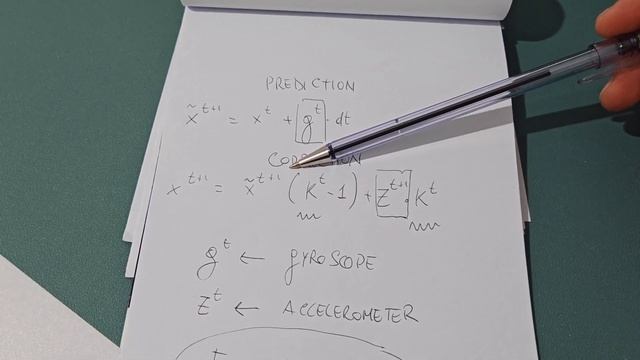 PREDICTION
x̃ᵗ⁺¹ = xᵗ + gᵗ · dt
xᵗ⁺¹ = x̃ᵗ⁺¹ (Kᵗ - 1) + Zᵗ⁺¹ · Kᵗ
gᵗ ← GYROSCOPE
Zᵗ ← ACCELEROMETER
t